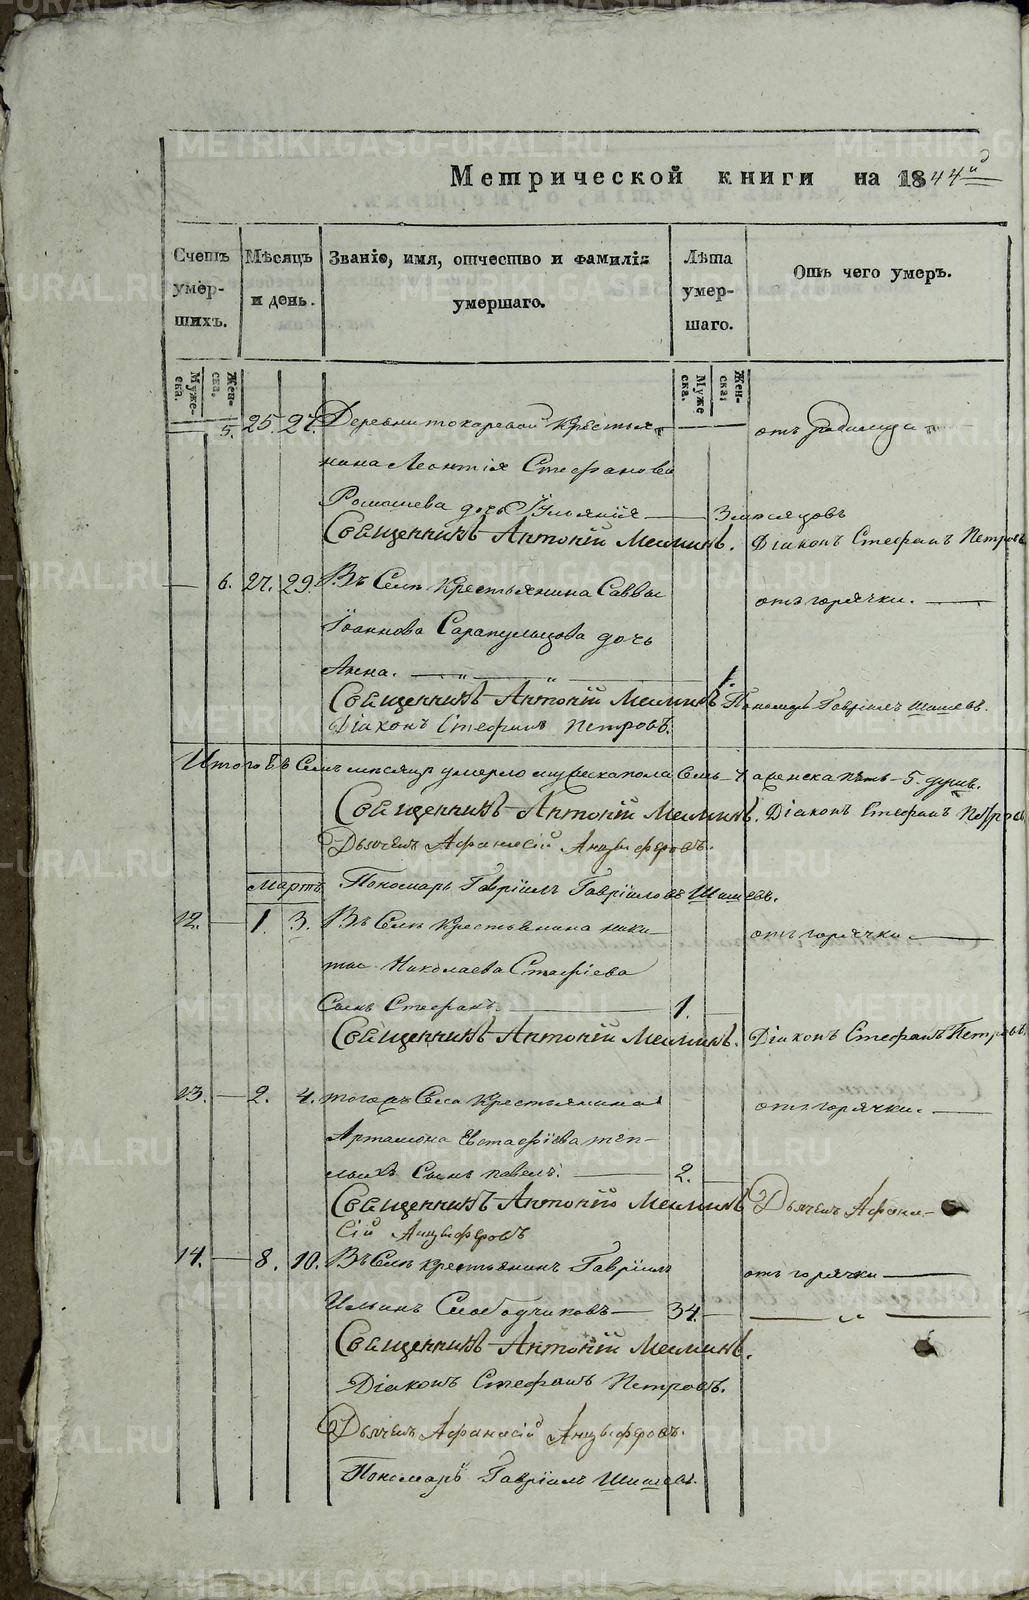 Метрической книги на 1844й
Счетъ умершихъ.
Мѣсяцъ и день.
Званіе, имя, отчество и фамилія умершаго.
Лѣта умершаго.
Отъ чего умеръ.
Мужеска.
Женска.
Мужеска
Женска:
5. 25. 27. Деревни токаревой Крестья- отъ родимца
нина Леонтія Стефанова
дочь Іульянія 3 мѣсяцовъ
Священникъ Антоній Меминъ. Діаконъ Стефанъ Петровъ
6. 27. 29. Въ Селѣ Крестьянина Саввы отъ горячки.
Іоаннова Сарапульцова дочь
Анна. 1.
Священникъ Антоній Меминъ Пономарь Гавріилъ Шишевъ.
Діаконъ Стефанъ Петровъ.
Итого Въ Семъ мѣсяцѣ умерло мужеска пола Семь 7 а женска пять 5. душъ.
Священникъ Антоній Меминъ. Діаконъ Стефанъ Петровъ
Дьячекъ Афанасій Анцыферовъ.
Мартъ Пономарь Гавріилъ Гавріиловъ Шишевъ.
12. 1. 3. Въ Селѣ Крестьянина ники- отъ горячки
ты Николаева Стафіева
Сынъ Стефанъ. 1.
Священникъ Антоній Меминъ. Діаконъ Стефанъ Петровъ.
13. 2. 4. тогожъ Села Крестьянина отъ горячки.
Артамона Евстафіева теп-
лыхъ Сынъ павелъ. 2.
Священникъ Антоній Меминъ Дьячекъ Афана-
сій Анцыферовъ
14. 8. 10. Въ Селѣ крестьянинъ Гавріилъ отъ горячки
Ильинъ Слободчиковъ 34.
Священникъ Антоній Меминъ.
Діаконъ Стефанъ Петровъ.
Дьячекъ Афанасій Анцыферовъ.
Пономарь Гавріилъ Шишевъ.
METRIKI.GASO-URAL.RU